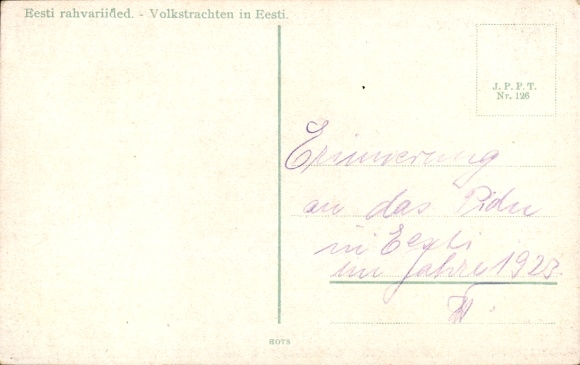 Eesti rahvariided. - Volkstrachten in Eesti.
J. P. P. T.
Nr. 126
Erinnerung
an das Pidu
in Eesti
im Jahre 1923.